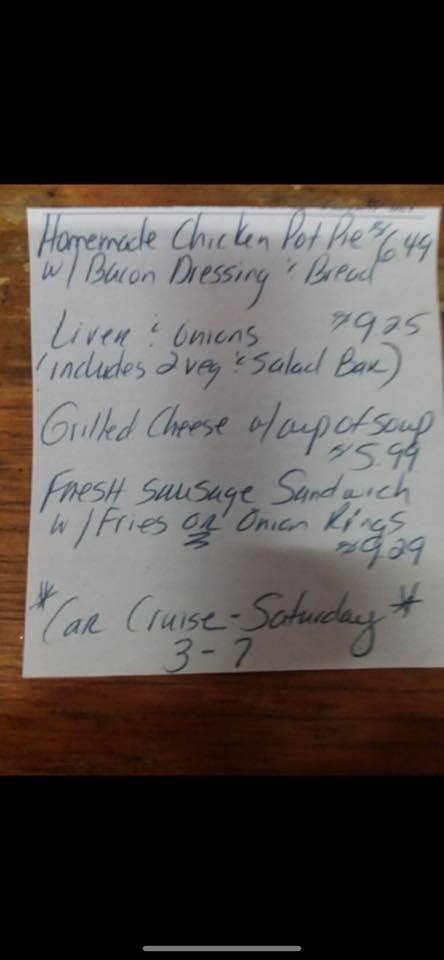 Homemade Chicken Pot Pie $6.49
w/ Bacon Dressing & Bread
Liver & Onions $9.25
(includes 2 veg & Salad Bar)
Grilled Cheese w/ cup of soup
$5.99
Fresh Sausage Sandwich
w/ Fries or Onion Rings
$9.29
*Car Cruise - Saturday*
3-7